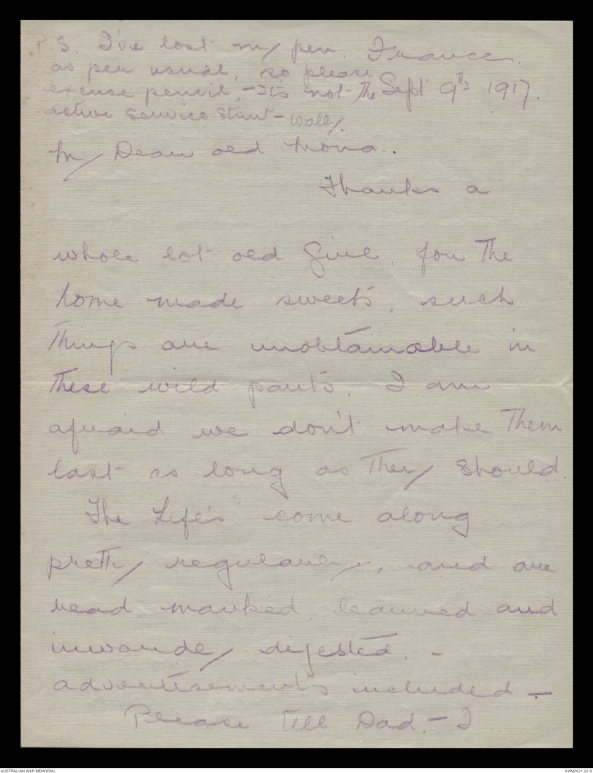 P.S. I've lost my pen France.
as per usual, so please
excuse pencil, - Its not the Sept 9th 1917.
active service stunt - Wally.
My Dear old Mona.
Thanks a
whole lot old Girl, for The
home made sweets, such
Things are unobtainable in
These wild parts. I am
afraid we don't make Them
last as long as They should.
The Life's come along
pretty regularly, and are
read marked, learned and
inwardly digested. -
advertisements included -
Please Tell Dad, - I
AUSTRALIAN WAR MEMORIAL